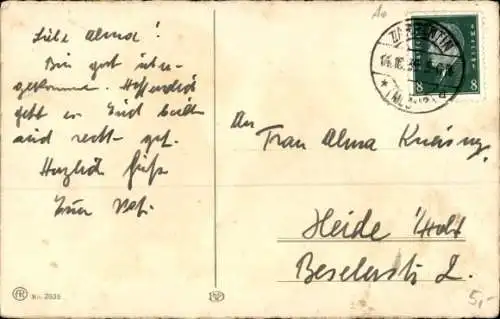 Liebe Alma!
Bin gut über-
gekommen. Hoffentlich
geht es Euch beiden
auch recht gut.
Herzliche Grüße
Euer
An
Frau Alma
Heide i/Holst
Beselerstr. 2.
8 8
No. 2635
5,-